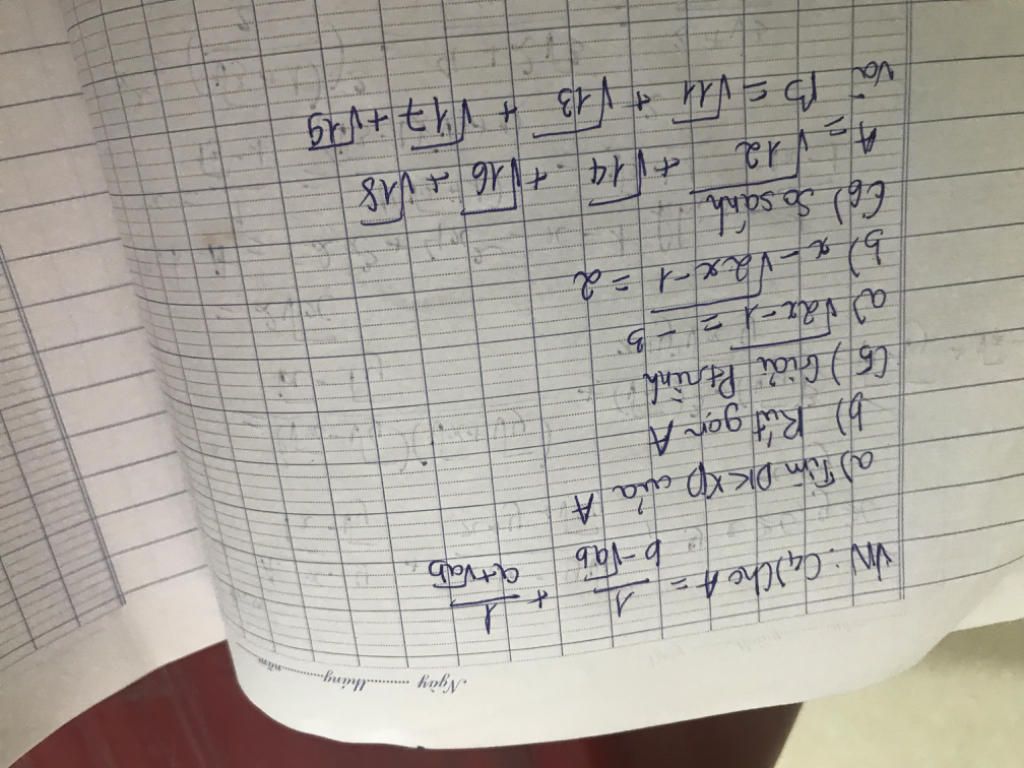 Ngày ........ tháng ........ năm ........
VN: C4) Cho A = 1/(b-√ab) + 1/(a+√ab)
a) Tìm ĐKXĐ của A
b) Rút gọn A
C5) Giải Pt rình
a) √2x-1 = -3
b) x - √2x-1 = 2
C6) So sánh
A = √12 + √14 + √16 + √18
Và B = √11 + √13 + √17 + √19